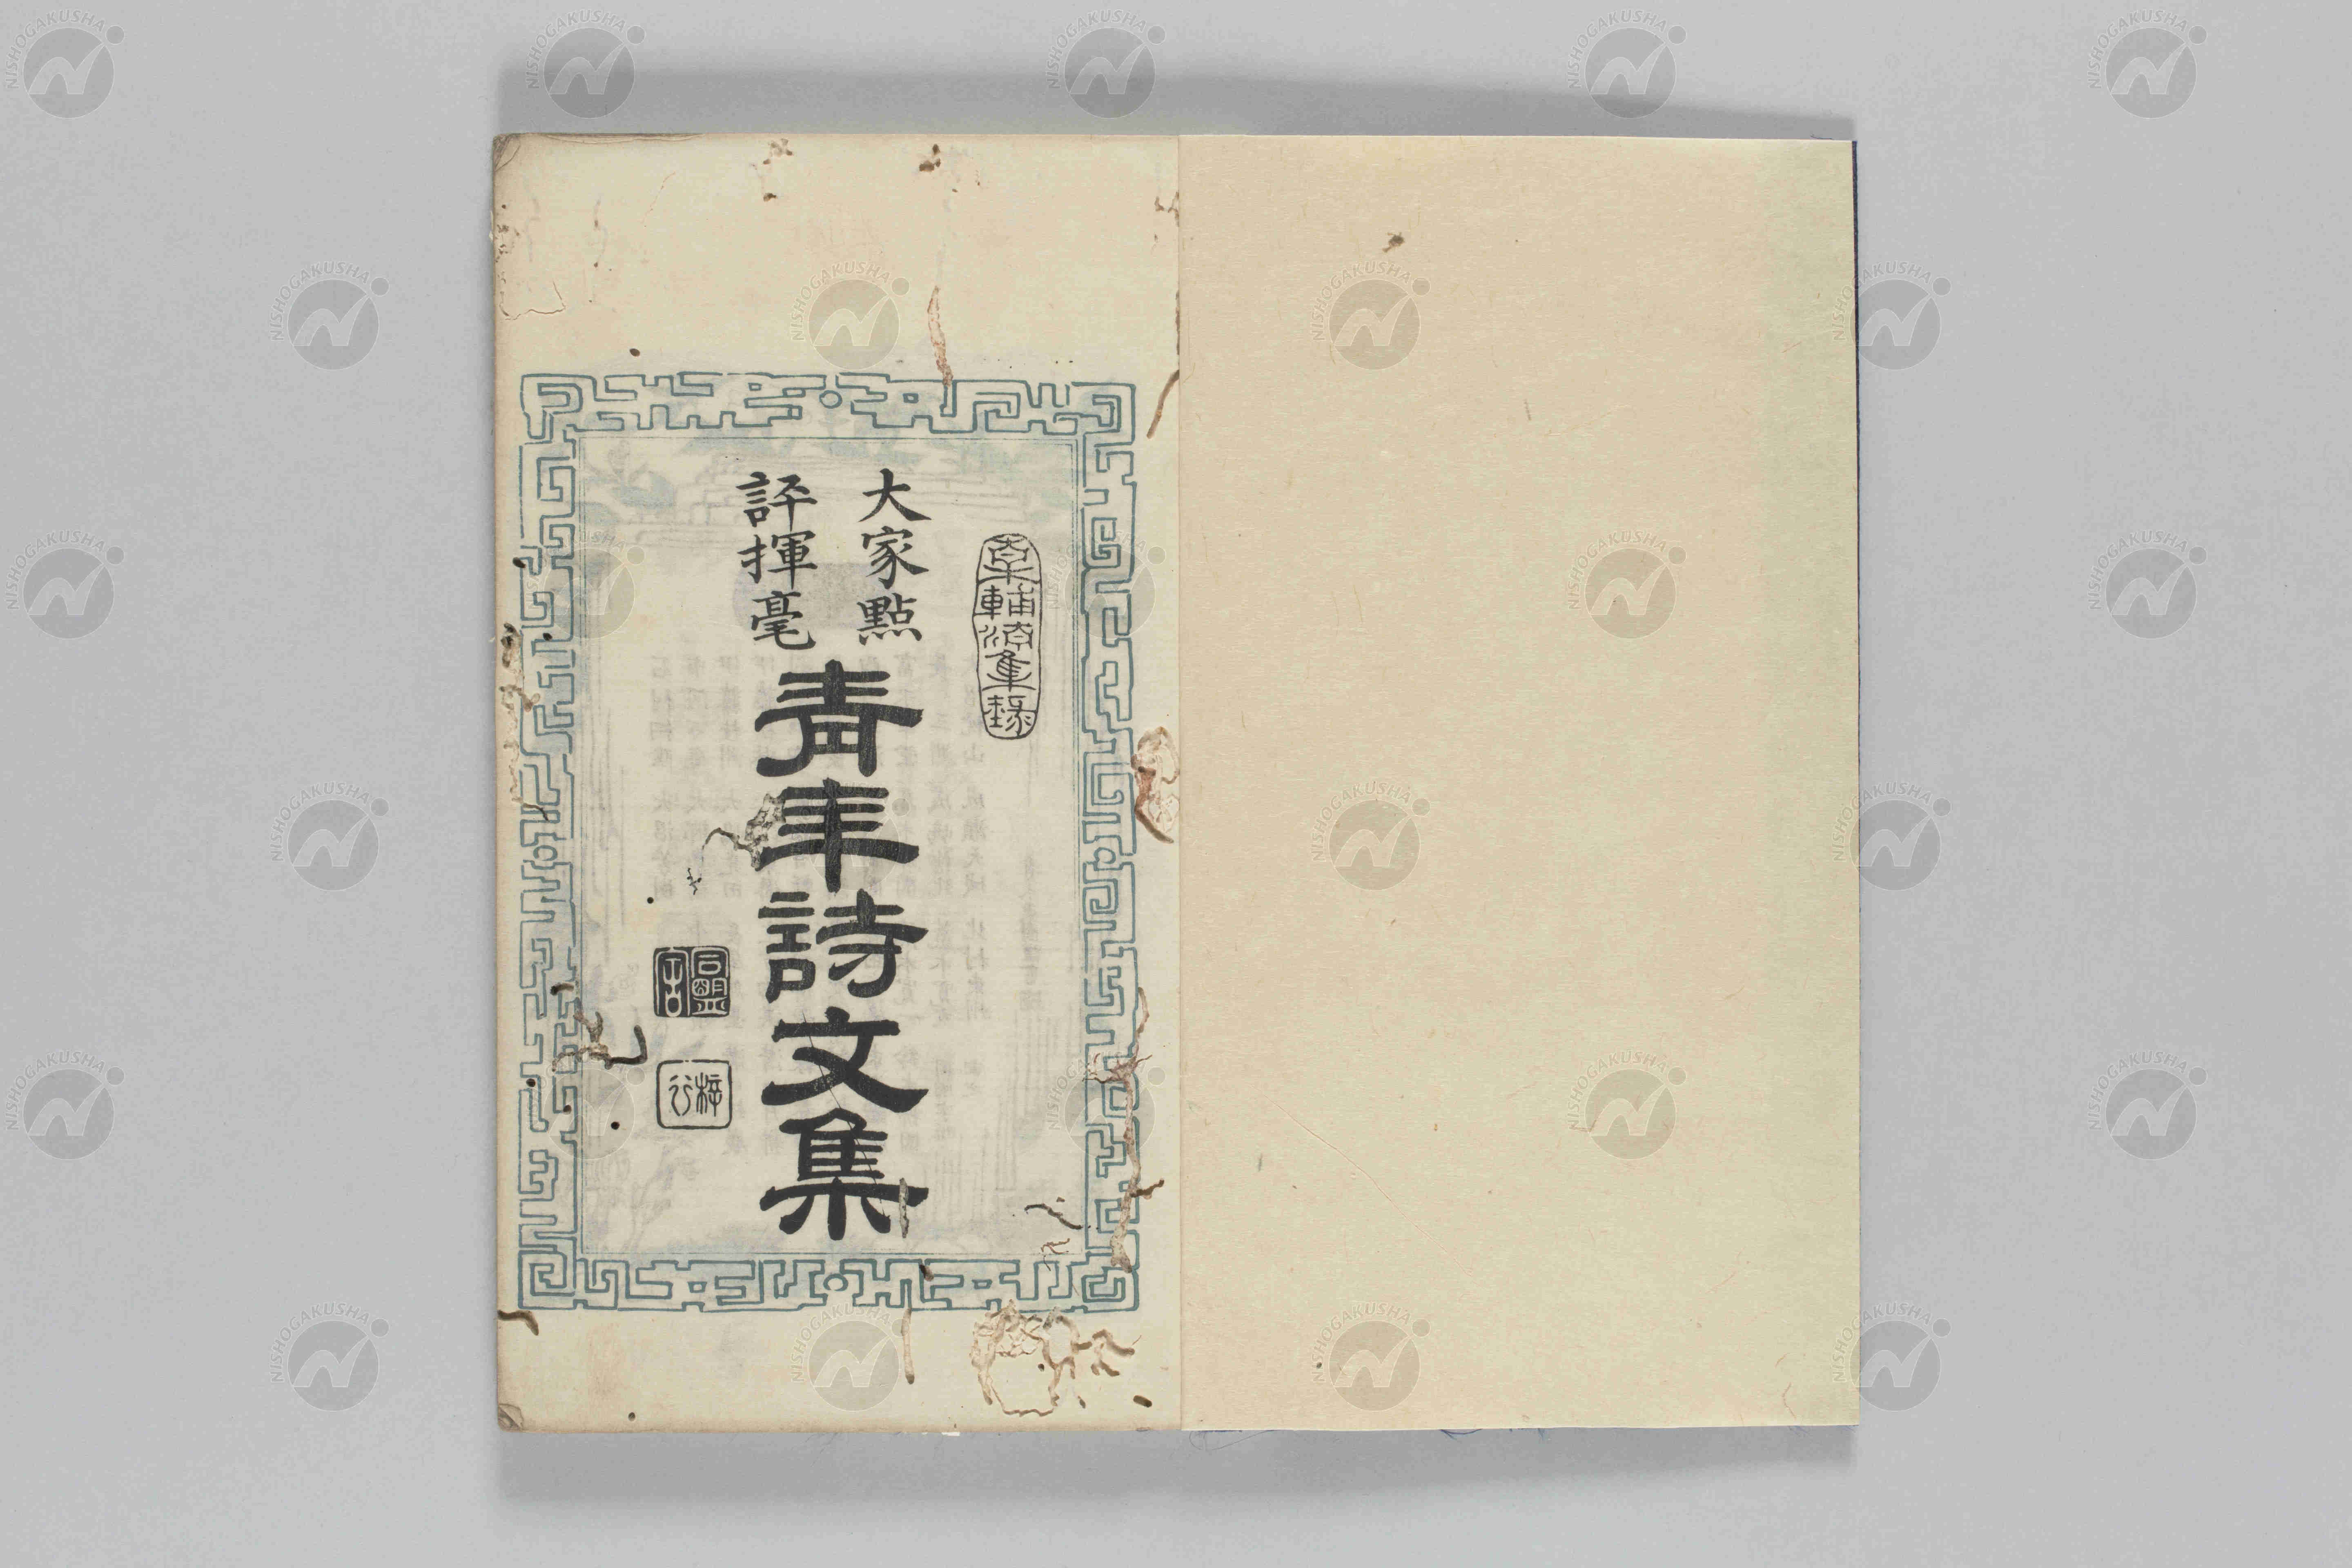 大家點
評揮毫
青年詩文集
梓行
NISHOGAKUSHA